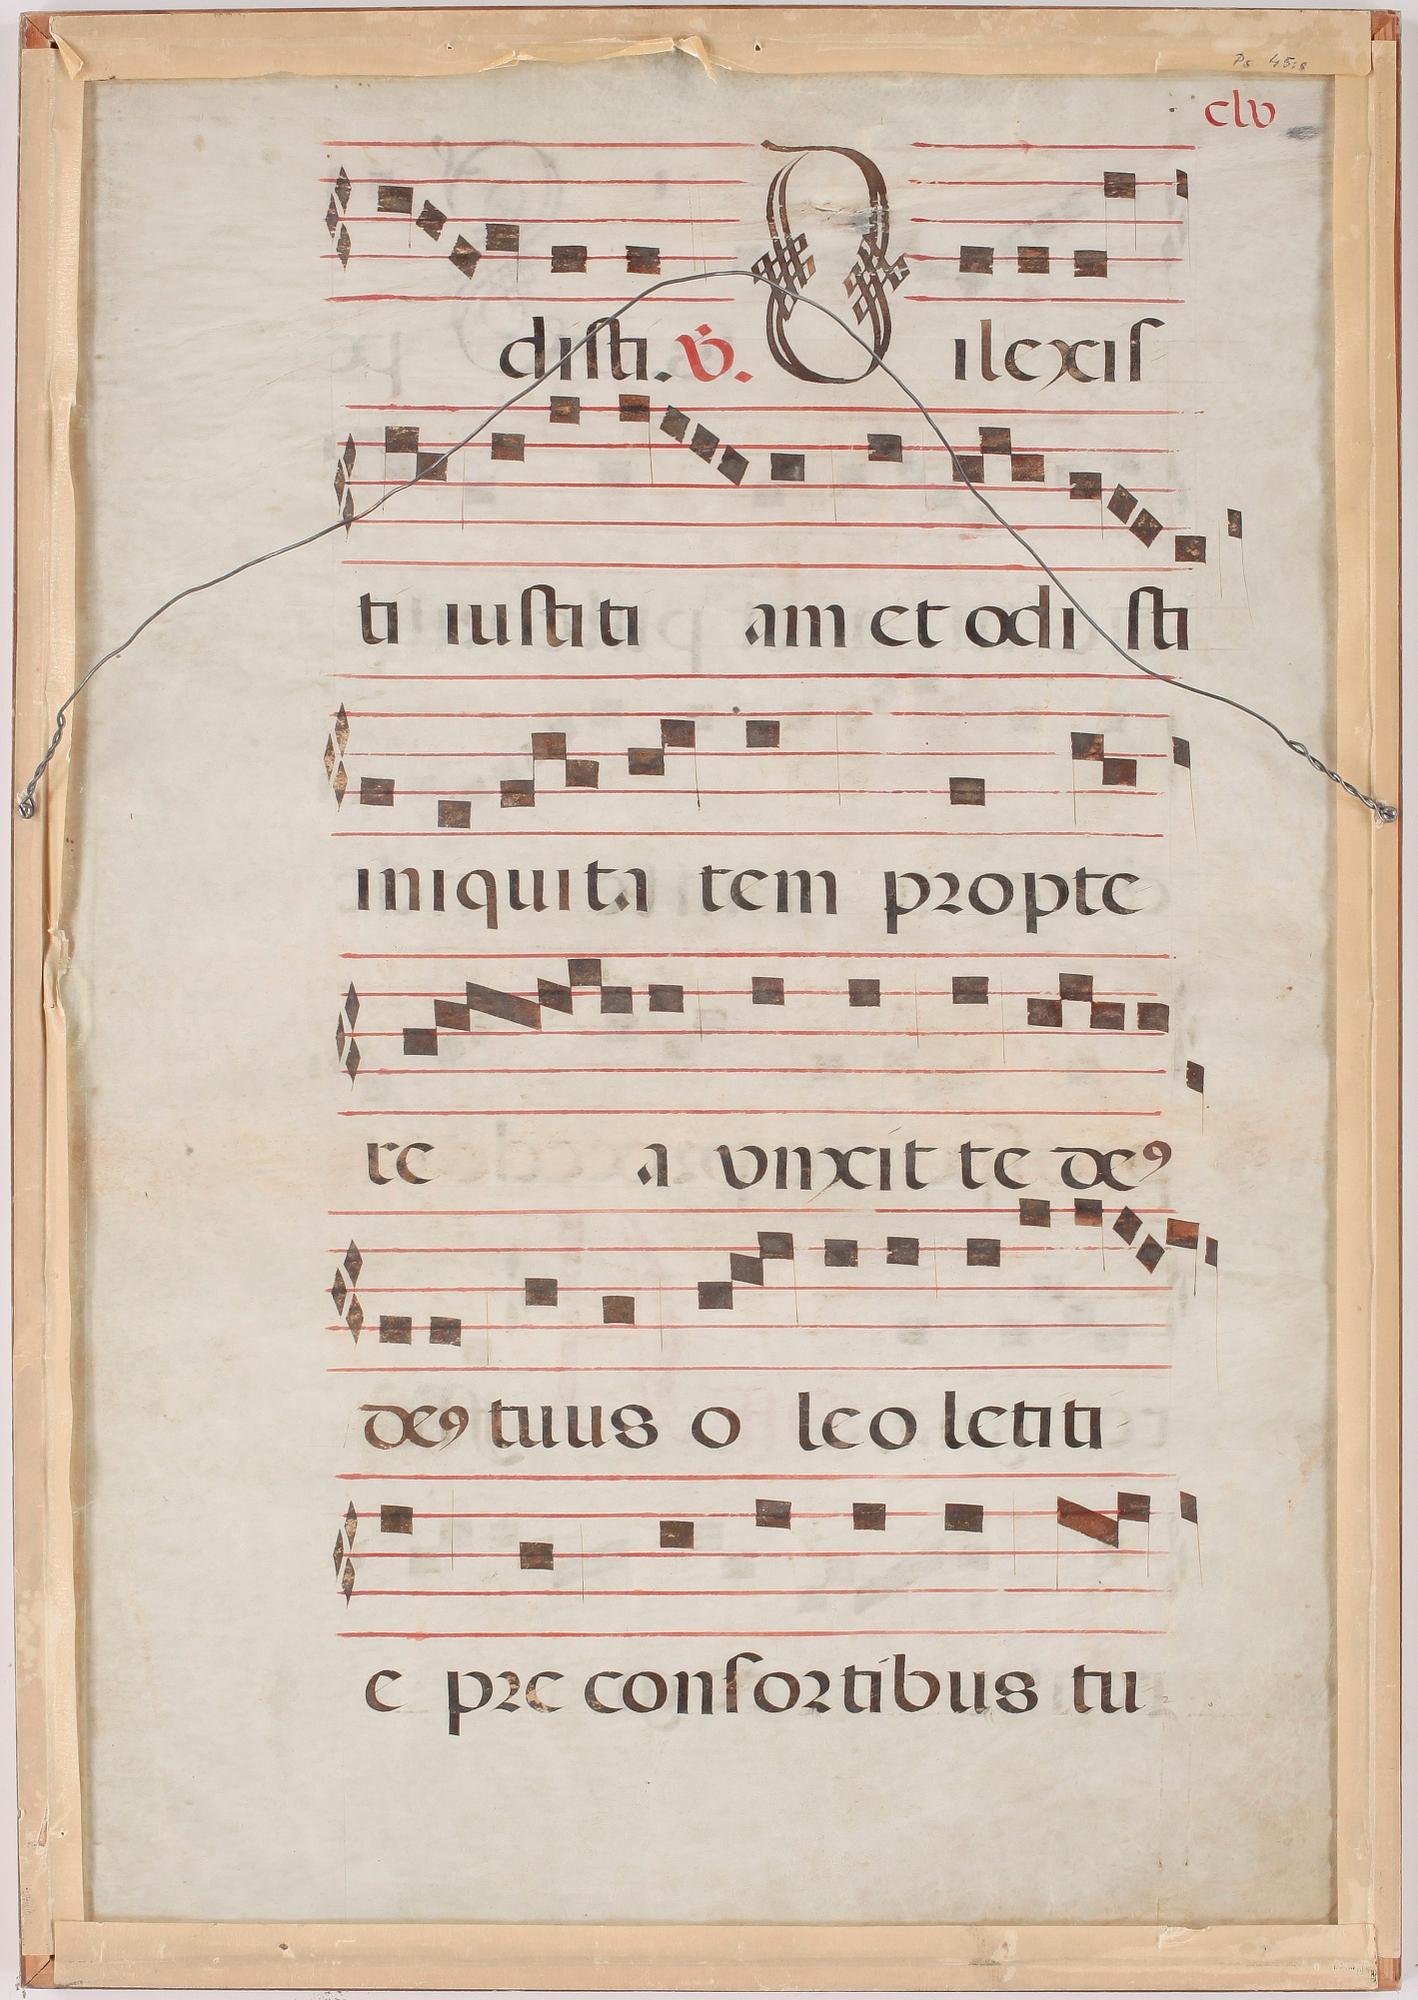 Ps 45:8
clv
disti. v. Dilexis
ti iustiti am et odi sti
iniquita tem propte
re a vnxit te de⁹
de⁹ tuus o leo letiti
e pre consortibus tu